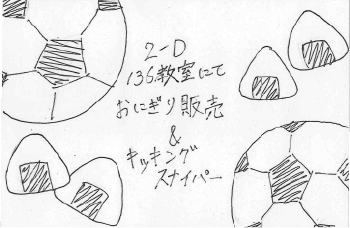 2-D
136教室にて
おにぎり販売
&
キッキング
スナイパー